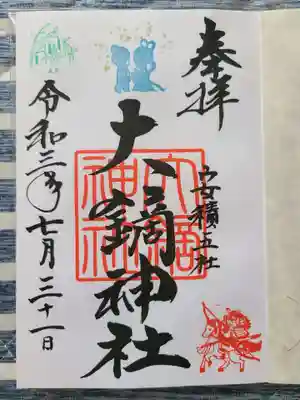 奉拝
安積五社
大鏑神社
大鏑神社
令和三年七月三十一日